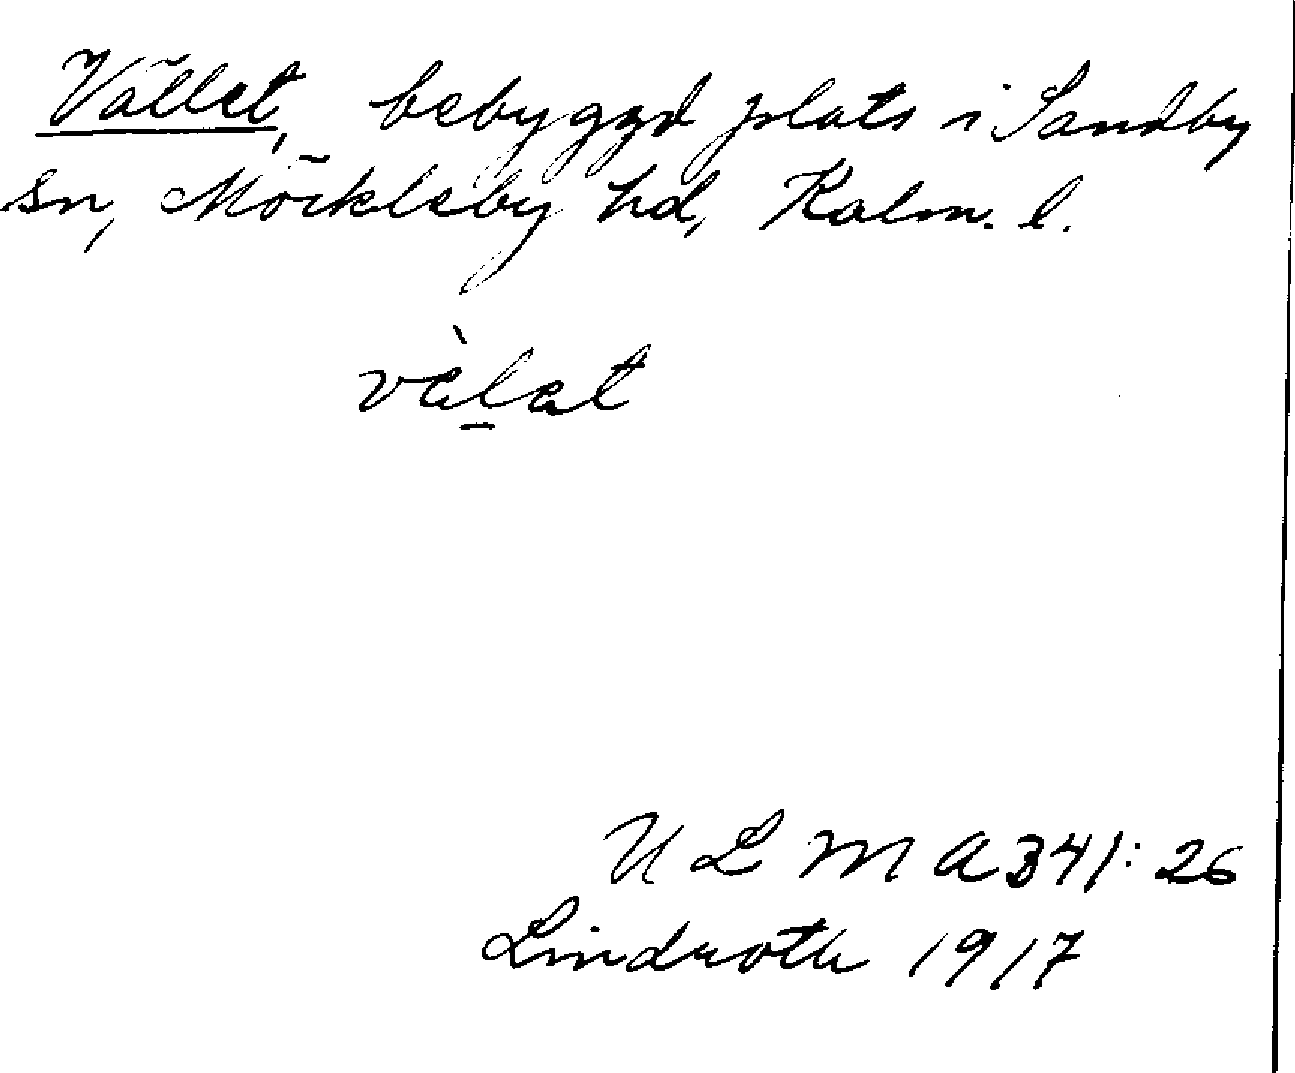 Vället, bebyggd plats i Sandby
sn, Möckleby hd, Kalm. l.
vàlat
ULMA 341: 26
Lindroth 1917